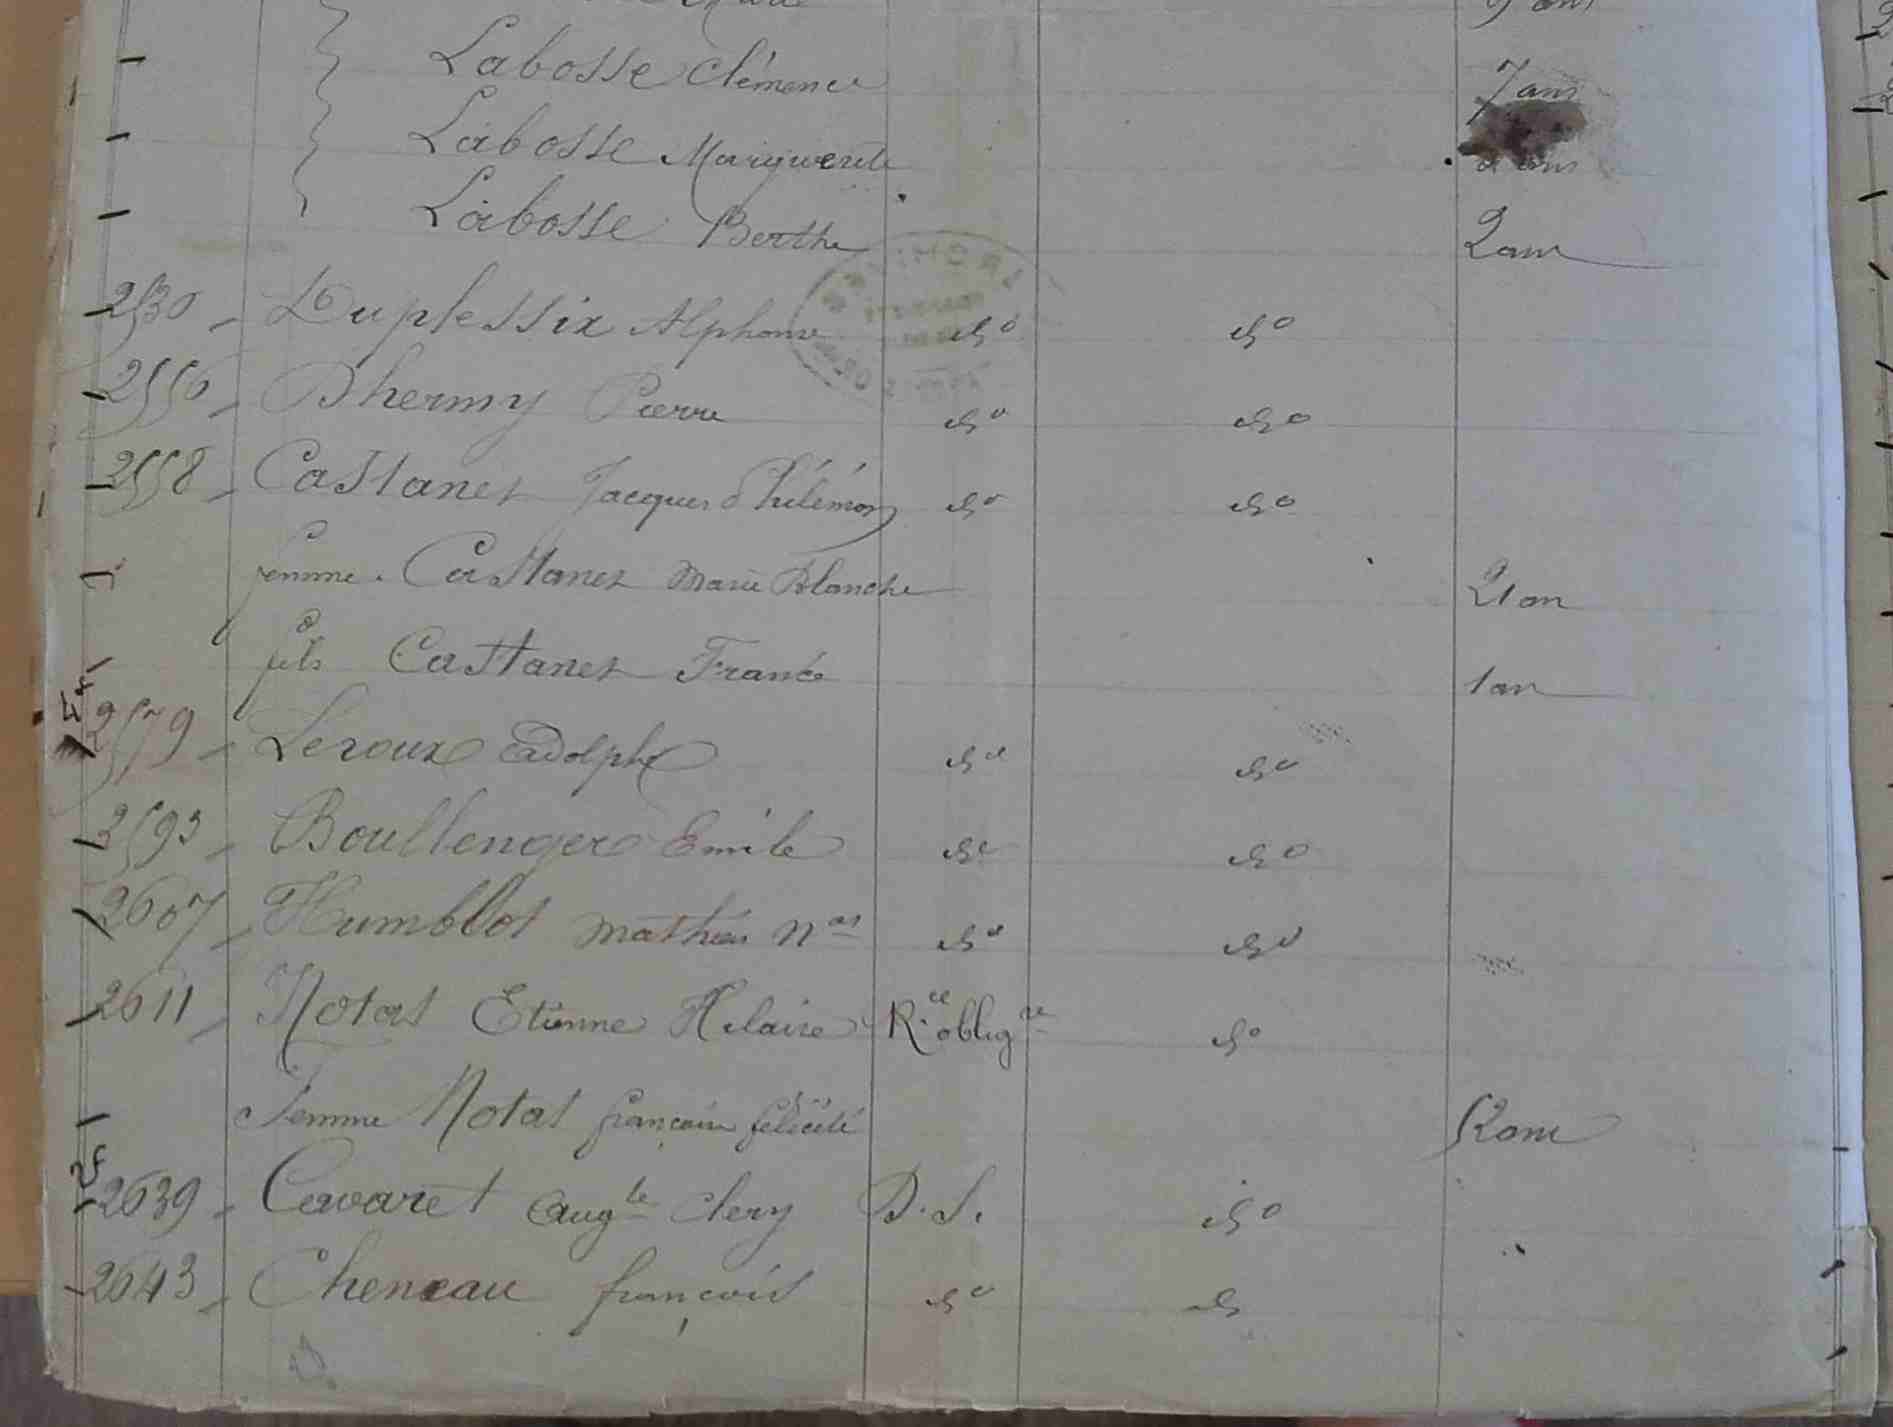 9 ans
Labosse Clémence 7 ans
Labosse Marguerite ans
Labosse Berthe 2 ans
2530 - Duplessix Alphonse do do
2556 - Dhermy Pierre do do
2558 - Castanet Jacques Philémon do do
femme. Castanet Marie Blanche 21 an
fils Castanet Francis 1 an
2579 - Leroux Adolphe do do
2593 - Boullenger Emile do do
2607 - Humblot Mathieu Nas do do
2611 - Notat Etienne Hilaire Rce obligre do
Femme Notat françoise félicité 52 ans
2639 - Cavaret Augte Clery D. S. do
2643 - Cheneau françois do do